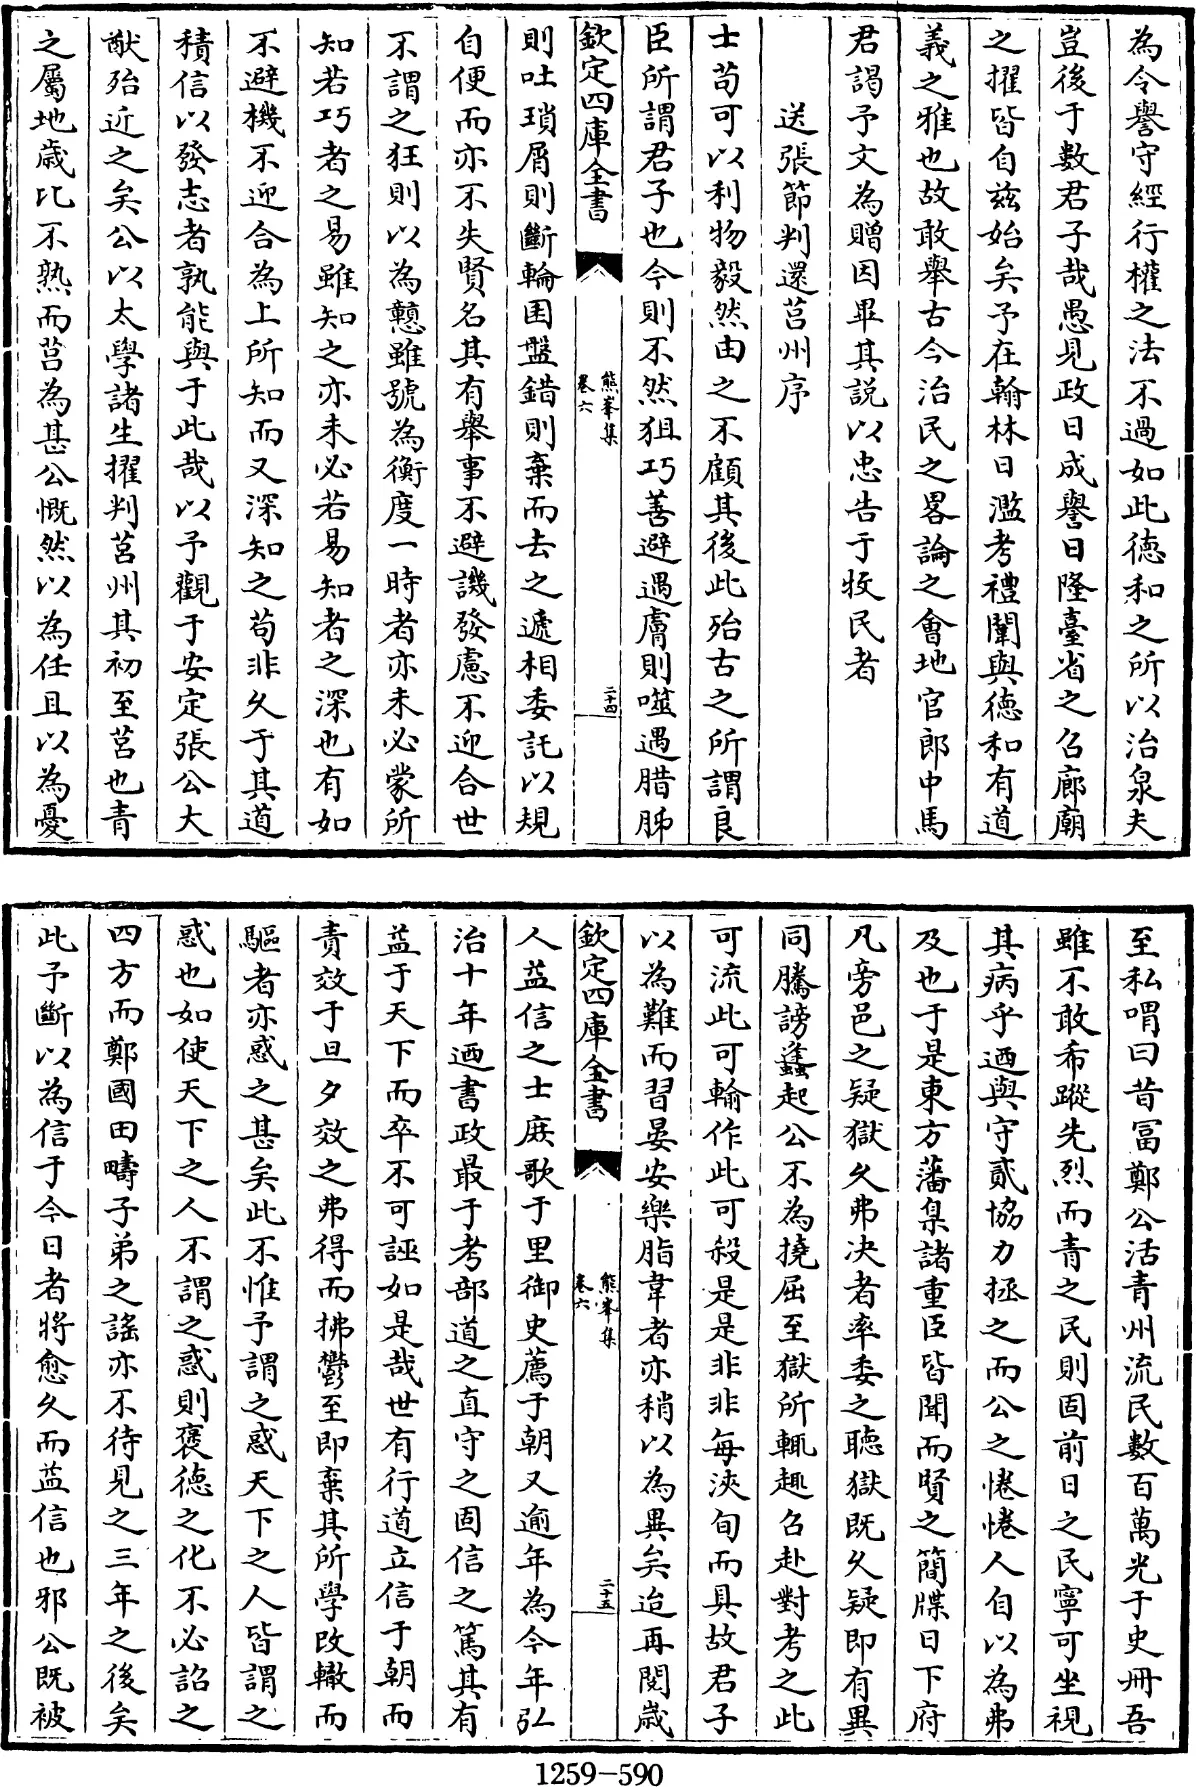 為令譽守經行權之法不過如此德和之所以治泉夫
豈後于數君子哉愚見政日成譽日隆臺省之召廊廟
之擢皆自兹始矣予在翰林日濫考禮闈與德和有道
義之雅也故敢舉古今治民之畧論之會地官郎中馬
君謁予文為贈因畢其說以忠告于牧民者
送張節判還莒州序
士苟可以利物毅然由之不顧其後此殆古之所謂良
臣所謂君子也今則不然狙巧善避遇膚則噬遇腊胏
欽定四庫全書
熊峯集
卷六
二十四
則吐瑣屑則斷輪囷盤錯則棄而去之遞相委託以規
自便而亦不失賢名其有舉事不避譏發慮不迎合世
不謂之狂則以為戅雖號為衡度一時者亦未必蒙所
知若巧者之易雖知之亦未必若易知者之深也有如
不避機不迎合為上所知而又深知之苟非久于其道
積信以發志者孰能與于此哉以予觀于安定張公大
猷殆近之矣公以太學諸生擢判莒州其初至莒也青
之屬地歲比不熟而莒為甚公慨然以為任且以為憂
至私喟曰昔富鄭公活青州流民數百萬光于史冊吾
雖不敢希蹤先烈而青之民則固前日之民寧可坐視
其病乎迺與守貳協力拯之而公之惓惓人自以為弗
及也于是東方藩臬諸重臣皆聞而賢之簡牒日下府
凡旁邑之疑獄久弗决者率委之聽獄既久疑即有異
同騰謗蠭起公不為撓屈至獄所輒趣召赴對考之此
可流此可輸作此可殺是是非非每浹旬而具故君子
以為難而習晏安樂脂韋者亦稍以為異矣迨再閱歲
欽定四庫全書
熊峯集
卷六
二十五
人益信之士庶歌于里御史薦于朝又逾年為今年弘
治十年迺書政最于考部道之直守之固信之篤其有
益于天下而卒不可誣如是哉世有行道立信于朝而
責效于旦夕效之弗得而拂鬱至即棄其所學改轍而
驅者亦惑之甚矣此不惟予謂之惑天下之人皆謂之
惑也如使天下之人不謂之惑則褒德之化不必詔之
四方而鄭國田疇子弟之謠亦不待見之三年之後矣
此予斷以為信于今日者將愈久而益信也邪公既被
1259-590